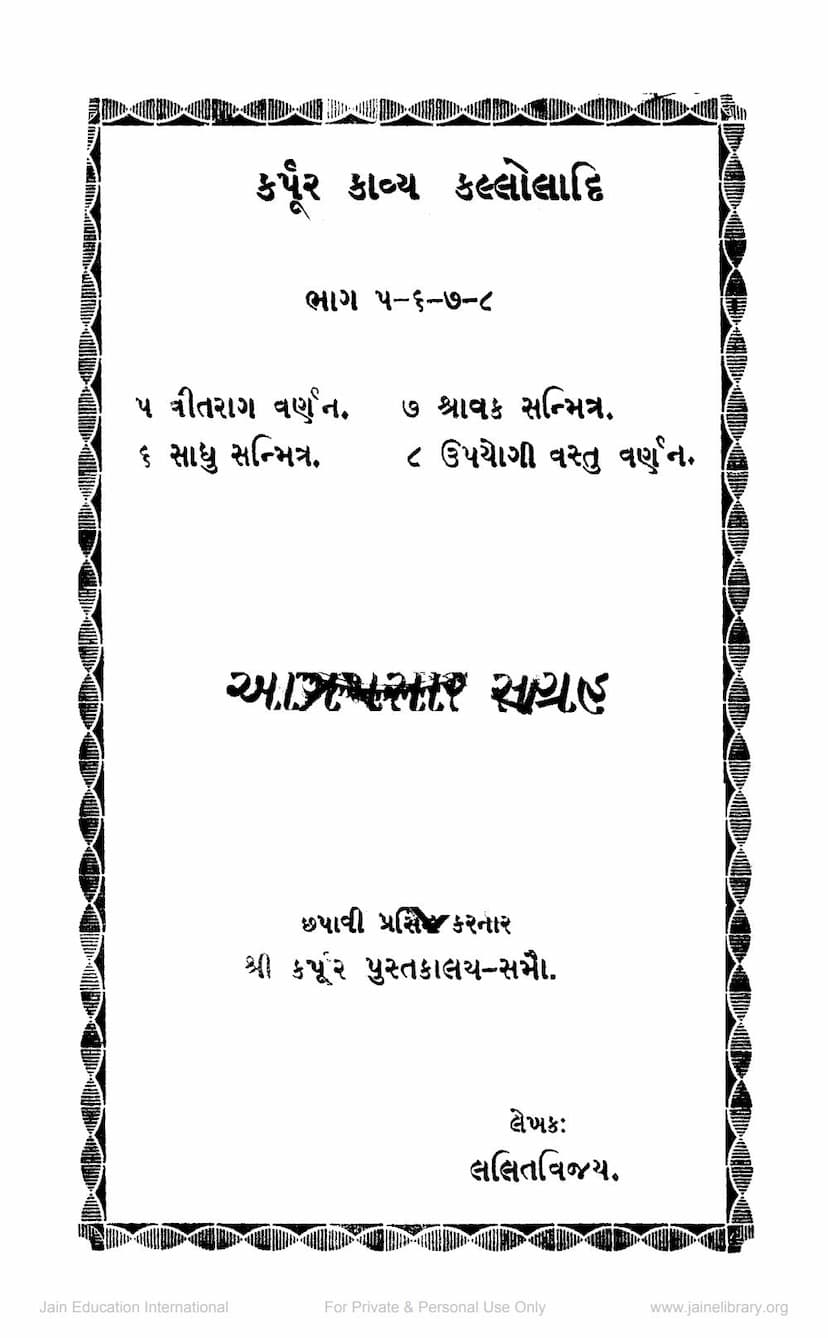 કર્પૂર કાવ્ય કલ્લોલાદિ
ભાગ ૫-૬-૭-૮
૫ વીતરાગ વર્ણન. ૭ શ્રાવક સન્મિત્ર.
૬ સાધુ સન્મિત્ર. ૮ ઉપયોગી વસ્તુ વર્ણન.
છપાવી કરનાર
શ્રી કર્પૂર પુસ્તકાલય-સમૌ.
લેખક:
લલિતવિજય.
Jain Education International For Private & Personal Use Only www.jainelibrary.org